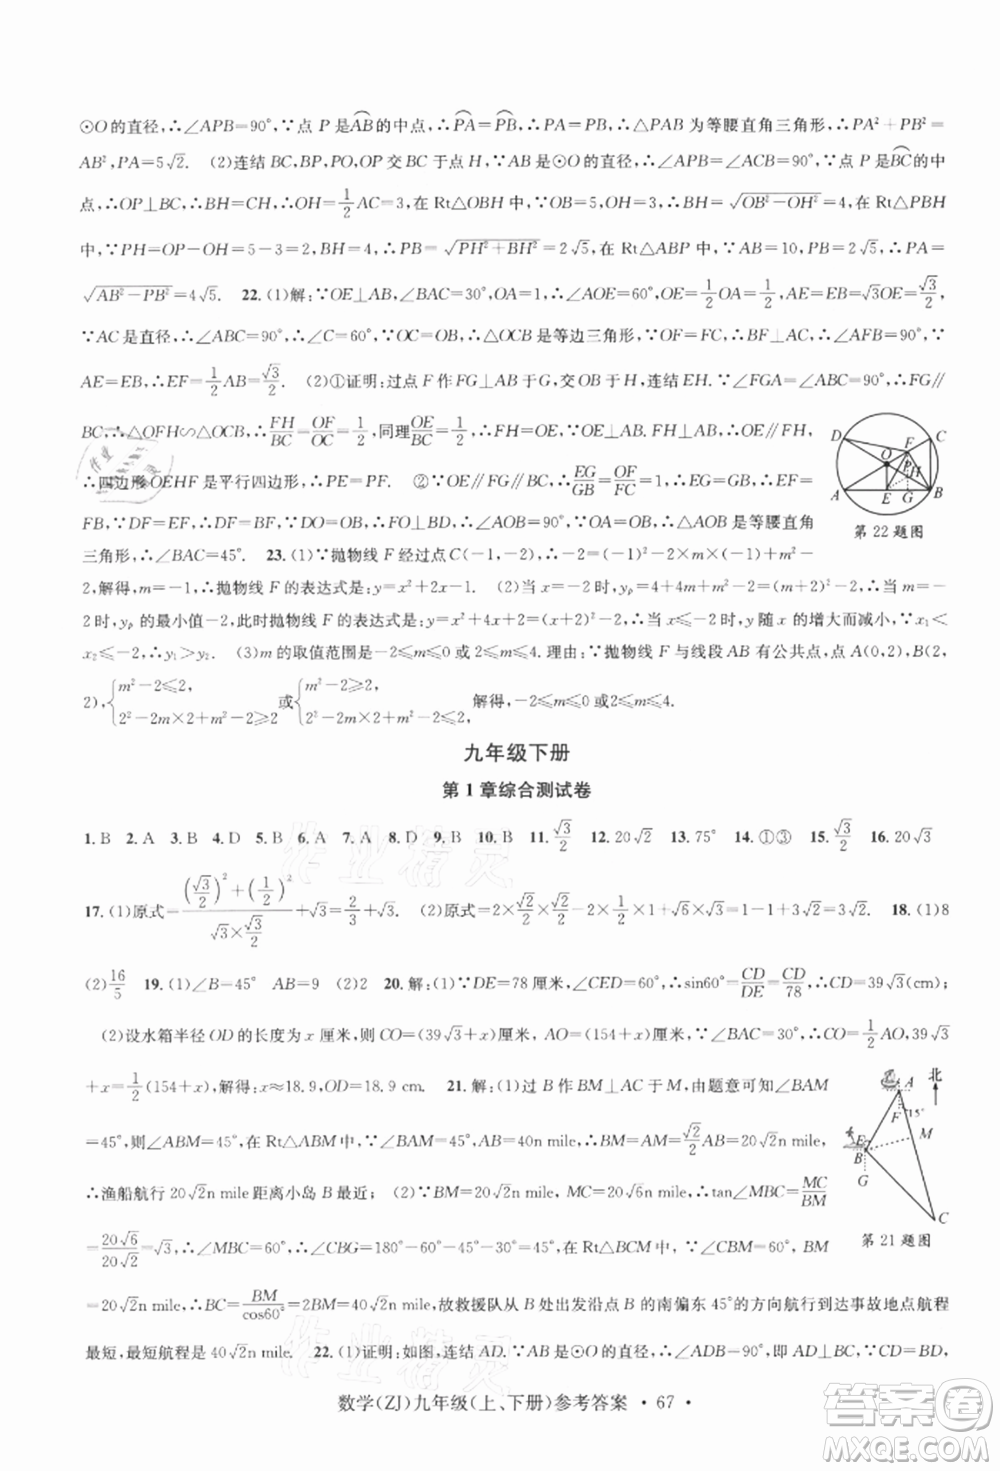 ⊙O的直径,∴∠APB=90°,∵点 P 是AB的中点,∴PA=PB,∴△PAB为等腰直角三角形,∴PA²+PB²=
AB²,PA=5√2. (2)连结BC,BP,PO,OP交BC于点H,∵AB是⊙O的直径,∴∠ACB=90°,∵点P是BC的中
点,∴OP⊥BC,∴BH=CH,∴OH=1/2AC=3,在Rt△OBH中,∵OB=5,OH=3,∴BH=√(OB²-OH²)=4,在Rt△PBH
中,∵PH=OP-OH=5-3=2,BH=4,∴PB=√(PH²+BH²)=2√5,在Rt△ABP中,∵AB=10,PB=2√5,∴AP=
√(AB²-PB²)=4√5. 22.(1)解:∵OE⊥AB,∠BAC=30°,OA=1,∴∠AOE=60°,OE=1/2OA=1/2,AE=EB=√3OE=√3/2,
∵AC是直径,∴∠ABC=90°,∴∠C=60°,∵OC=OB,∴△OCB是等边三角形,∵OF=FC,∴BF⊥AC,∴∠AFB=90°,∵
AE=EB,∴EF=1/2AB=√3/2. (2)①证明:过点F作FG⊥AB于G,交OB于H,连结EH.∵∠FGA=∠ABC=90°,∴FG∥
BC,∴△OFH∽△OCB,∴FH/BC=OF/OC=1/2,同理OE/BC=1/2,∴FH=OE,∵OE⊥AB,FH⊥AB,∴OE∥FH,
∴四边形OEHF是平行四边形,∴PE=PF. ②∵OE∥FG∥BC,∴EG/GB=OF/FC=1,∴EG=GB,∴EF=
FB,∵DF=EF,∴DF=BF,∵DO=OB,∴FO⊥BD,∴∠AOB=90°,∵OA=OB,∴△AOB是等腰直角
三角形,∴∠BAC=45°. 23.(1)∵抛物线F经过点C(-1,-2),∴-2=(-1)²-2×m×(-1)+m²-
2,解得,m=-1,∴抛物线F的表达式是:y=x²+2x-1. (2)当x=-2时,yₚ=4+4m+m²-2=(m+2)²-2,∴当m=-
2时,yₚ的最小值-2,此时抛物线F的表达式是:y=x²+4x+2=(x+2)²-2,∴当x≤-2时,y随x的增大而减小,∵x₁<
x₂≤-2,∴y₁>y₂. (3)m的取值范围是-2≤m≤0或2≤m≤4.理由:∵抛物线F与线段AB有公共点,点A(0,2),B(2,
2),{m²-2≤2, 2²-2m×2+m²-2≥2或{m²-2≥2, 2²-2m×2+m²-2≤2, 解得,-2≤m≤0或2≤m≤4.
D F C O P H E G A B
第22题图
九年级下册
第1章综合测试卷
1.B 2.A 3.B 4.D 5.B 6.A 7.A 8.D 9.B 10.B 11.√3/2 12.20√2 13.75° 14.①③ 15.√3/2 16.20√3
17.(1)原式=((√3/2)²+(1/2)²)/(√3×√3/2)+√3=2/3+√3 (2)原式=2×√2/2-1/2×1+√3=1-1+3√2=3√2 18.(1)8
(2)16/5 19.(1)∠B=45° AB=9 (2)2 20.解:(1)∵DE=78厘米,∠CED=60°,∴sin60°=CD/DE=CD/78,∴CD=39√3(cm);
(2)设水箱半径OD的长度为x厘米,则CO=(39√3+x)厘米,AO=(154+x)厘米,∵∠BAC=30°,∴CO=1/2AO,39√3
+x=1/2(154+x),解得:x≈18.9,OD=18.9 cm. 21.解:(1)过B作BM⊥AC于M,由题意可知∠BAM
=45°,则∠ABM=45°,在Rt△ABM中,∵∠BAM=45°,AB=40n mile,∴BM=AM=√2/2AB=20√2n mile,
∴渔船航行20√2n mile距离小岛B最近; (2)∵BM=20√2n mile,MC=20√6n mile,∴tan∠MBC=MC/BM
=20√6/20√2=√3,∴∠MBC=60°,∴∠CBG=180°-60°-45°-30°=45°,在Rt△BCM中,∵∠CBM=60°,BM=
20√2n mile,∴BC=BM/cos60°=2BM=40√2n mile,故救援队从B出发沿点B的南偏东45°的方向航行到达事故地点航程
最短,最短航程是40√2n mile. 22.(1)证明:如图,连结AD.∵AB是⊙O的直径,∴∠ADB=90°,即AD⊥BC,∵DC=BD,
北 A F 15° E B M G C
第21题图
数学(ZJ)九年级(上、下册)参考答案 · 67 ·
作业精灵
作业精灵
作业精灵
答案圈
MXQE.COM